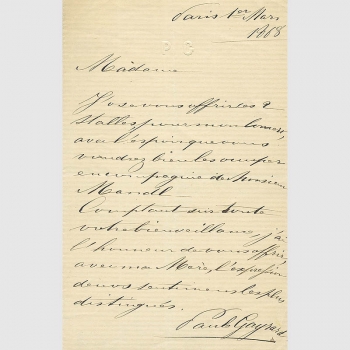 Paris 1er Mars
1868
Madame
J'ose vous offrir les 2
stalles pour mon concert
avec l'espoir que vous
voudrez bien les occuper
en compagnie de Monsieur
Comptant sur toute
votre bienveillance, j'ai
l'honneur de vous offrir,
avec ma Mère, l'expression
de nos sentiments les plus
distingués.
Paul